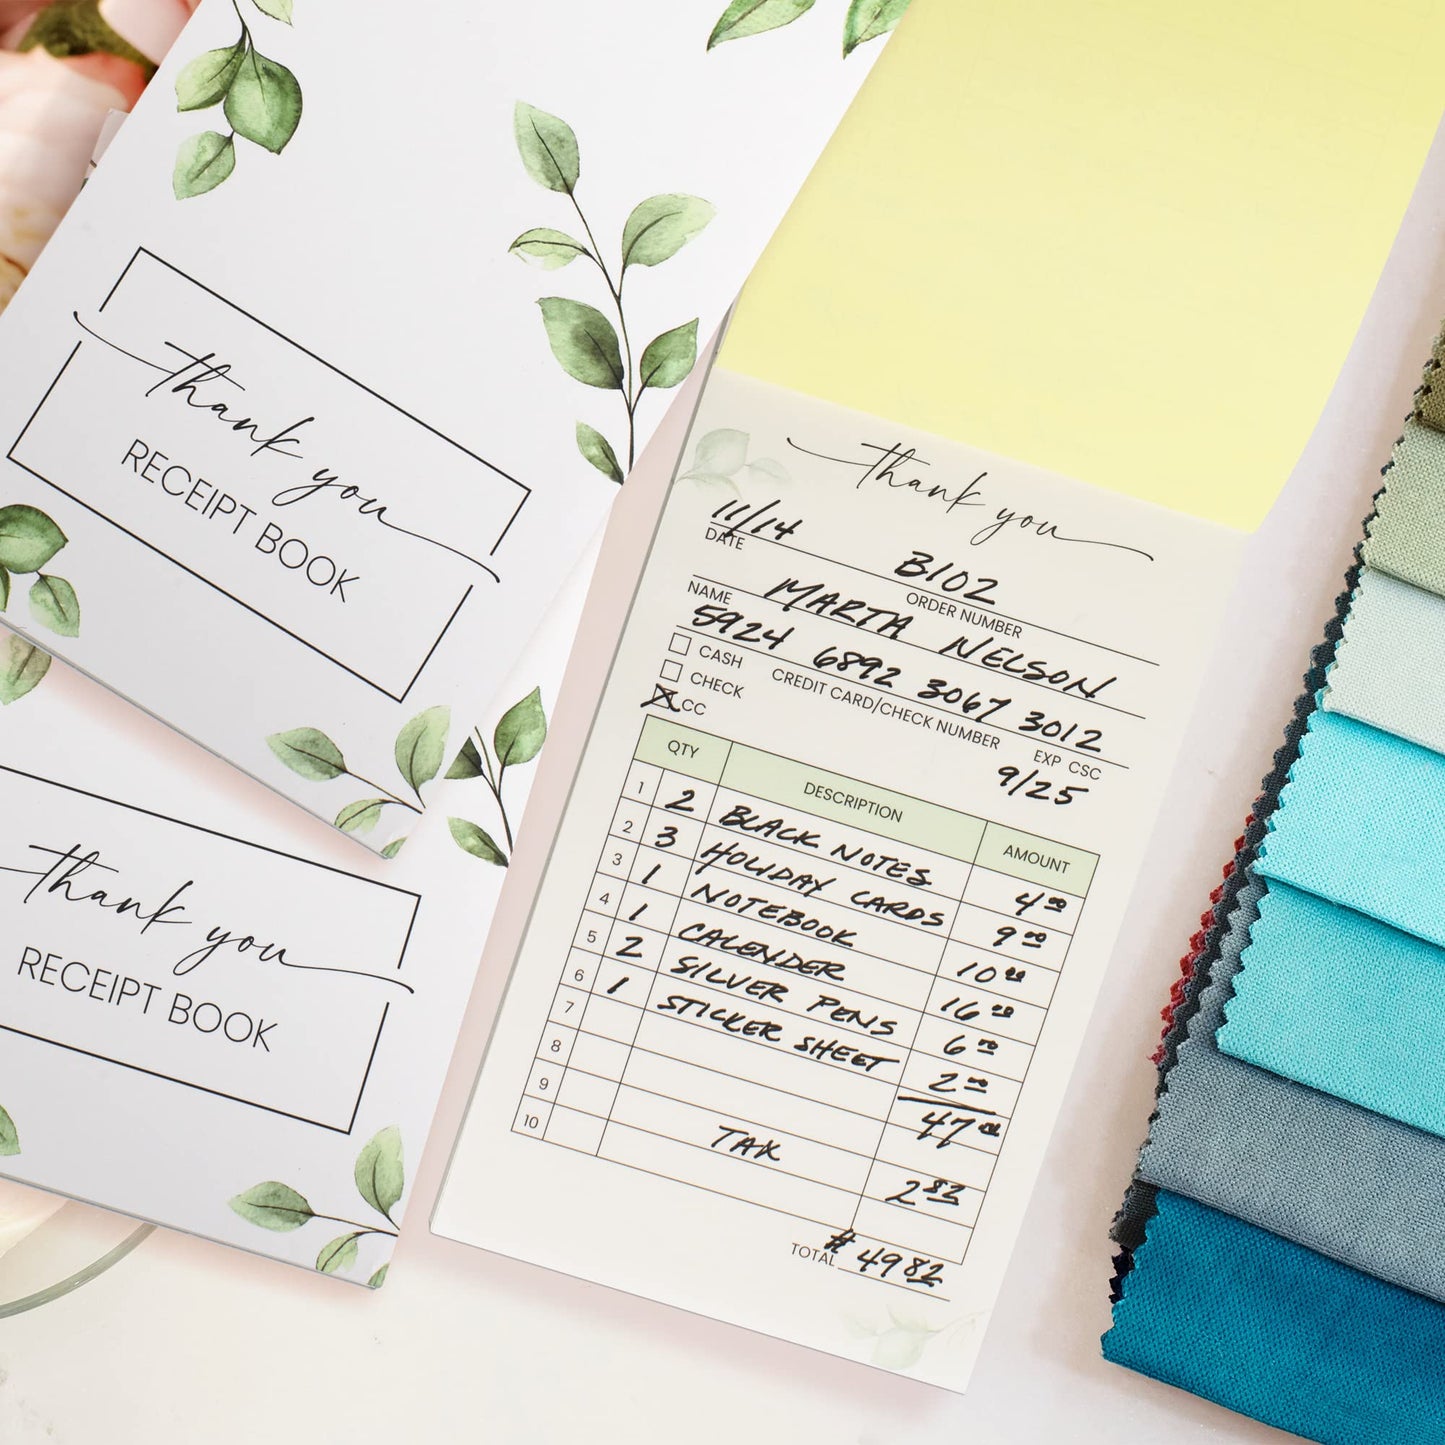 thank you
RECEIPT BOOK
thank you
RECEIPT BOOK
thank you
11/14 B102
DATE ORDER NUMBER
MARTA NELSON
NAME
5924 6892 3067 3012
CREDIT CARD/CHECK NUMBER EXP CSC
9/25
CASH
CHECK
CC
QTY DESCRIPTION AMOUNT
1 2 BLACK NOTES 4 00
2 3 HOLIDAY CARDS 9 00
3 1 NOTEBOOK 10 00
4 1 CALENDER 16 00
5 2 SILVER PENS 6 00
6 1 STICKER SHEET 2 00
7 47 00
8
9 TAX 2 82
10
TOTAL # 49 82